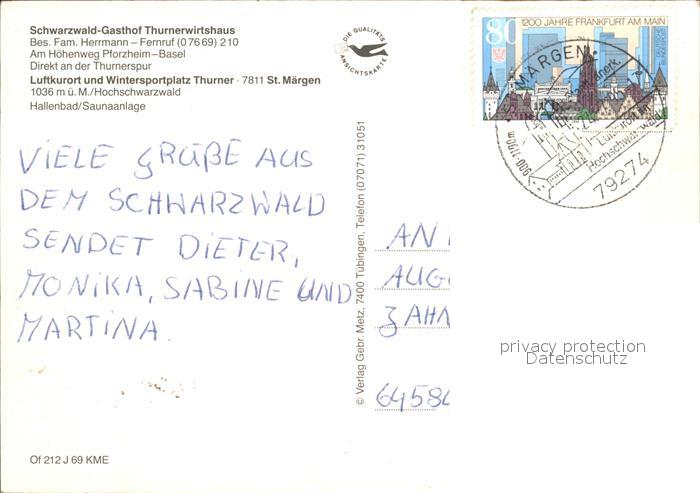 Schwarzwald-Gasthof Thurnerwirtshaus
Bes. Fam. Herrmann – Fernruf (0 76 69) 210
Am Höhenweg Pforzheim–Basel
Direkt an der Thurnerspur
Luftkurort und Wintersportplatz Thurner · 7811 St. Märgen
1036 m ü. M./Hochschwarzwald
Hallenbad/Saunaanlage
DIE QUALITÄTS
ANSICHTSKARTE
80
1200 JAHRE FRANKFURT AM MAIN
MÄRGEN
900-1100m
Luftkurort im
Hochschwarzwald
79274
VIELE GRÜßE AUS
DEM SCHWARZWALD
SENDET DIETER,
MONIKA, SABINE UND
MARTINA.
© Verlag Gebr. Metz, 7400 Tübingen, Telefon (07071) 31051
AN
AUG
ZAHN
6458
privacy protection
Datenschutz
Of 212 J 69 KME